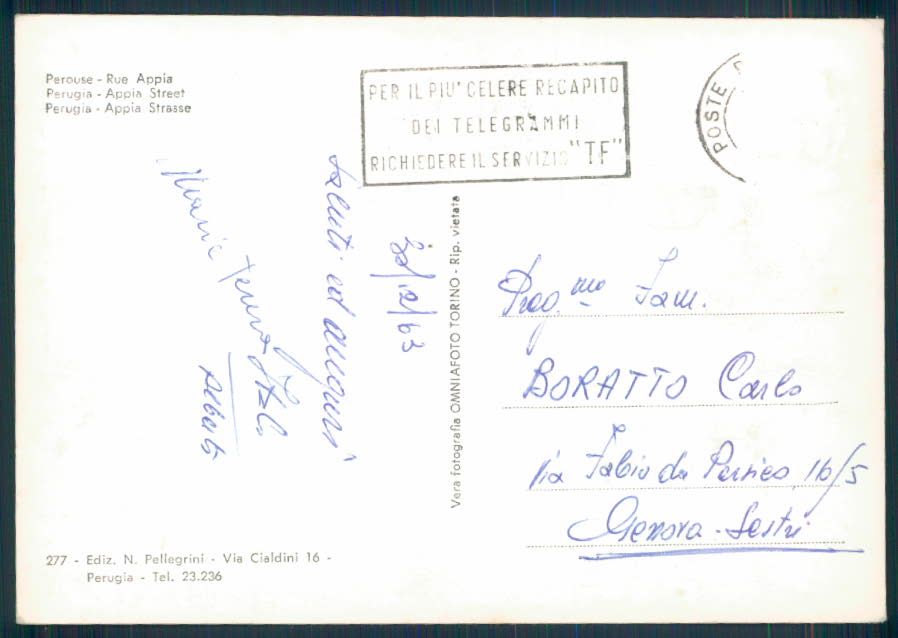 Perouse - Rue Appia
Perugia - Appia Street
Perugia - Appia Strasse
PER IL PIU' CELERE RECAPITO
DEI TELEGRAMMI
RICHIEDERE IL SERVIZIO "TF"
POSTE
Saluti ed auguri
Maria Teresa
Alberto
Vera fotografia OMNIAFOTO TORINO - Rip. vietata
Preg.mo Fam.
BORATTO Carlo
Via Fabio da Persico, 16/5
Genova - Sestri
277 - Ediz. N. Pellegrini - Via Cialdini 16 -
Perugia - Tel. 23.236